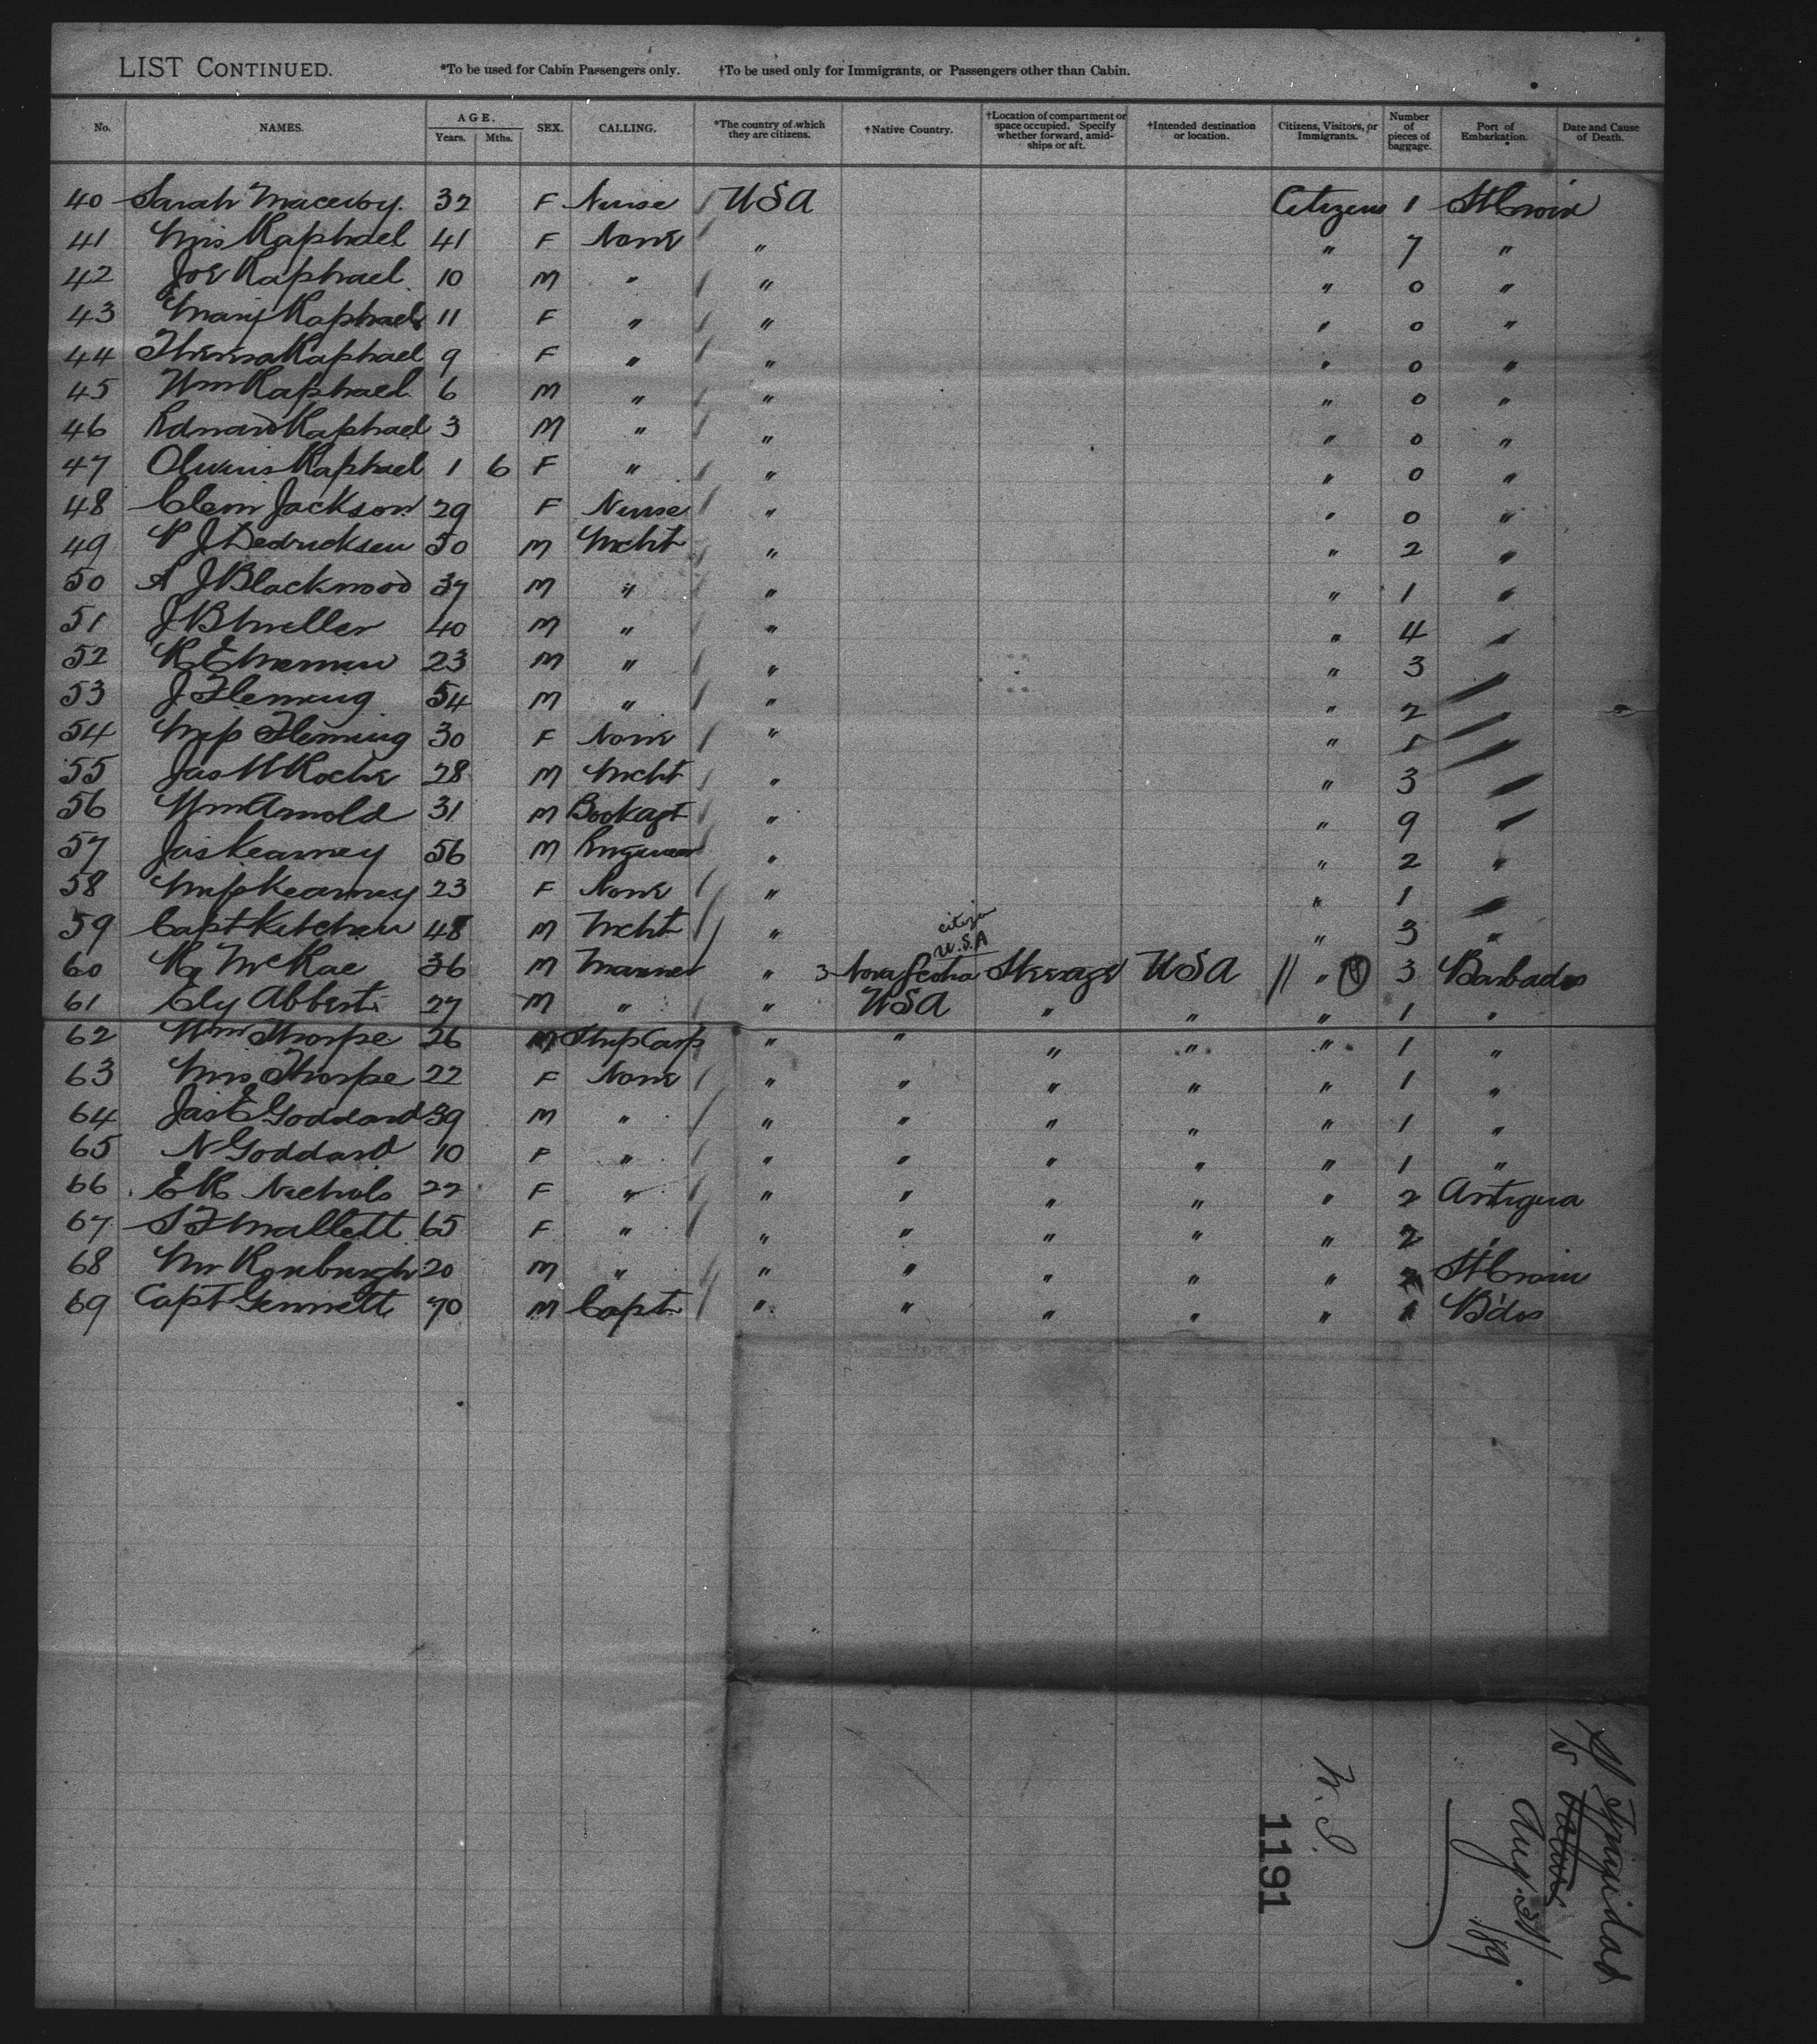 LIST CONTINUED. *To be used for Cabin Passengers only. †To be used only for Immigrants, or Passengers other than Cabin.
No. NAMES. AGE. Years. Mths. SEX. CALLING. *The country of which they are citizens. †Native Country. †Location of compartment or space occupied. Specify whether forward, amidships or aft. †Intended destination or location. Citizens, Visitors, or Immigrants. Number of pieces of baggage. Port of Embarkation. Date and Cause of Death.
40 Sarah 32 F Nurse USA Citizens 1 St Croix
41 Mrs Raphael 41 F None " " 7 "
42 Joe Raphael 10 M " " " 0 "
43 Mary Raphael 11 F " " " 0 "
44 Theresa Raphael 9 F " " " 0 "
45 Wm Raphael 6 M " " " 0 "
46 Edward Raphael 3 M " " " 0 "
47 Raphael 1 6 F " " " 0 "
48 Clem Jackson 29 F Nurse " " 0 "
49 J Dedricksen 50 M Mcht " " 2 "
50 A J Blackwood 37 M " " " 1 "
51 J B Miller 40 M " " " 4 "
52 R E 23 M " " " 3 "
53 J Fleming 54 M " " " 2
54 Miss Fleming 30 F None " " 1
55 Jas W Roche 28 M Mcht " " 3
56 Wm Arnold 31 M Bookagt " " 9 "
57 Jas Kearney 56 M Engineer " " 2 "
58 Miss Kearney 23 F None " " 1
59 Capt Kitchen 48 M Mcht " " 3 "
citizen
U.S.A
60 McRae 36 M Mariner " 3 Nova Scotia Steerage USA " 3 Barbados
61 Ely Abbert 27 M " " USA " " " 1 "
62 Wm Thorpe 26 M Ship Carp " " " " " 1 "
63 Mrs Thorpe 22 F None " " " " " 1 "
64 Jas E Goddard 39 M " " " " " " 1 "
65 N Goddard 10 F " " " " " " 1 "
66 E R Nichols 22 F " " " " " " 2 Antigua
67 S F Mallett 65 F " " " " " " 2 "
68 Mr Roxburgh 20 M " " " " " " 2 St Croix
69 Capt Gennett 70 M Capt " " " " " 1 B'dos
S/S Trinidad
15
Aug. 31/
189
W. I.
1191